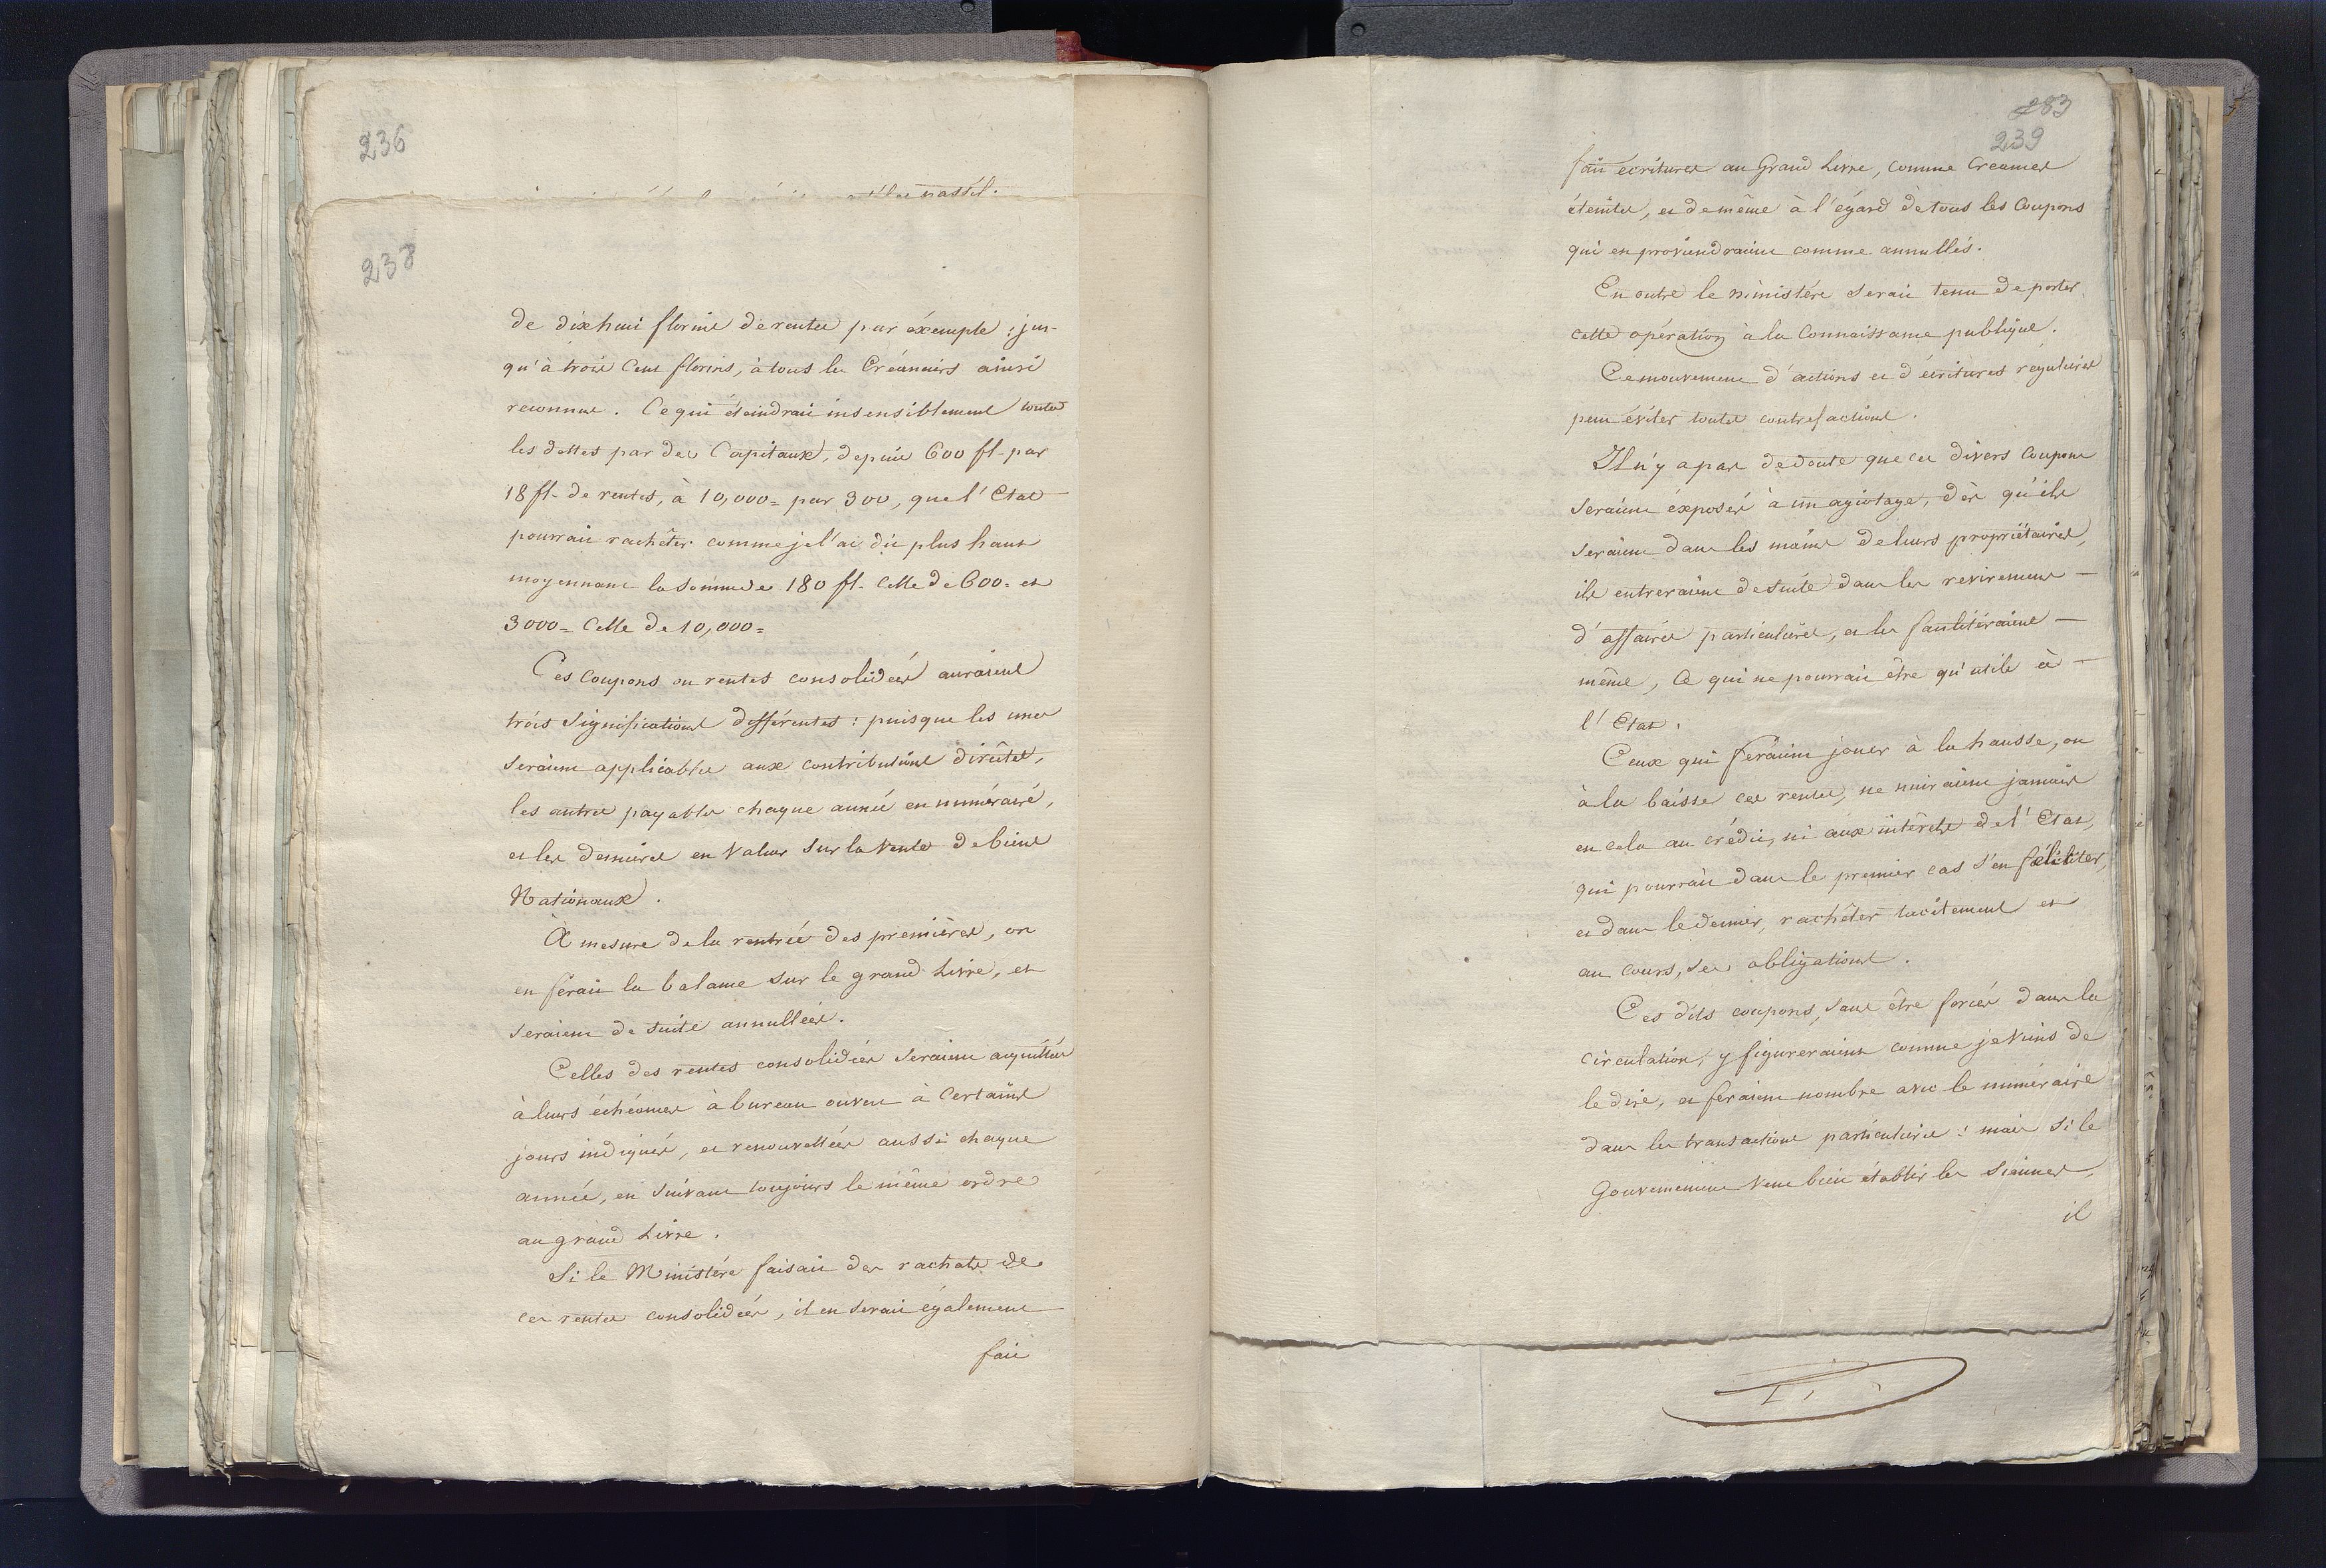 236
passés.
238
de dix huit florins de rentes par éxemple : jus-
qu'à trois Cent florins, à tous les Créanciers ainsi
reconnus. Ce qui éteindrait insensiblement toutes
les dettes par des Capitaux, depuis 600 fl- par
18 fl- de rentes, à 10,000= par 300, que l'Etat
pourrait rachêter comme je l'ai dit plus haut
moyennant la somme de 180 fl- Celle de 600= et
3000= Celle de 10,000=
Ces Coupons ou rentes consolidées auraient
trois Significations differentes : puisque les unes
seraient applicables aux contributions dirêctes,
les autres payables chaque année en numéraire,
et les dernieres en Valeur Sur la Vente de biens
Nationaux.
À mesure de la rentrée des premières, on
en férait la balance sur le grand Livre, et
seraient de suite annullées.
Celles des rentes consolidées seraient acquittées
à leurs échéances à bureau ouvert à Certains
jours indiqués, et renouvellées aussi chaque
année, en suivant toujours le même ordre
au grand Livre.
Si le Ministére faisait des rachats de
ces rentes consolidées, il en serait également
fait
283
239
fait écritures au Grand Livre, comme Creances
éteintes, et de même à l'égard de tous les Coupons
qui en proviendraient comme annullés.
En outre le ministére serait tenu de porter
cette opération à la Connaissance publique.
Ce mouvement d'actions et d'écritures régulières
peut éviter toutes contrefactions.
Il n'y a pas de doute que ces divers Coupons
seraient éxposés à un agiotage, dès qu'ils
seraient dans les mains de leurs propriétaires,
ils entreraient de suite dans les revirements
d'affaires particulières, et les facilitéraient
même, Ce qui ne pourrait être qu'utile à
l'Etat.
Ceux qui féraient jouer à la hausse, ou
à la baisse ces rentes, ne nuiraient jamais
en cela au crédit, ni aux intérêts de l'Etat,
qui pourrait dans le premier cas s'en féliciter,
et dans le dernier, rachêter tacitement et
au cours, ses obligations.
Ces dits coupons, sans être forcés dans la
circulation, y figureraient comme je viens de
le dire, et féraient nombre avec le numéraire
dans les transactions particulieres : mais si le
Gouvernement veut bien établir les siennes,
il